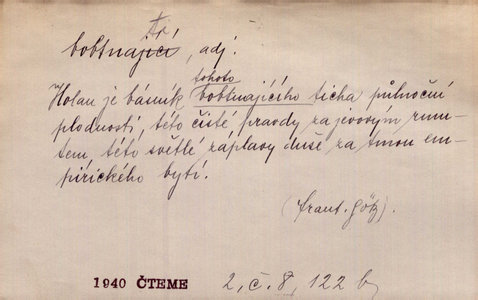 bobtnající, adj.
Holan je básník tohoto bobtnajícího ticha půlnoční
plodnosti, této čisté pravdy za jevovým rumu-
tem, této světlé záplavy duše za tmou em-
pirického bytí.
(Frant. Götz).
1940 ČTEME 2, č. 8, 122 b